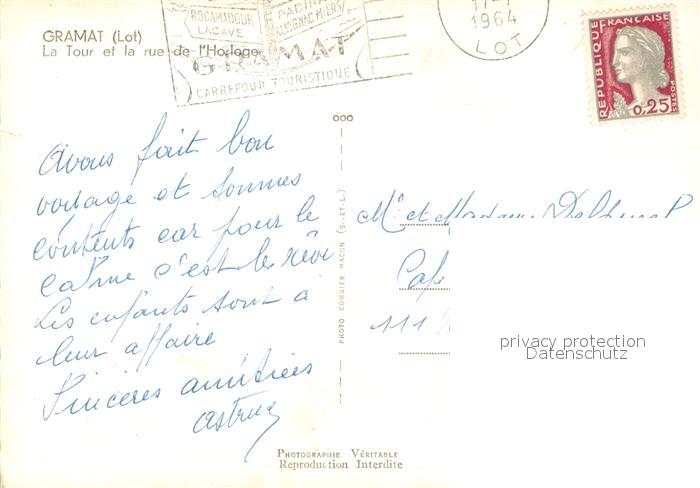 GRAMAT (Lot)
La Tour et la rue de l'Horloge
ROCAMADOUR
LACAVE
PADIRAC
ALVIGNAC MIERS
GRAMAT
CARREFOUR TOURISTIQUE
17-7
1964
LOT
REPUBLIQUE FRANCAISE
POSTES
0,25
Avons fait bon
voyage et sommes
contents car pour le
calme c'est le rêve
Les enfants sont à
leur affaire
Sincères amitiées
Astruc
PHOTO COMBIER MACON (S.-ET-L.)
Mr et Madame
Cafe
111
privacy protection
Datenschutz
PHOTOGRAPHIE VÉRITABLE
Reproduction Interdite